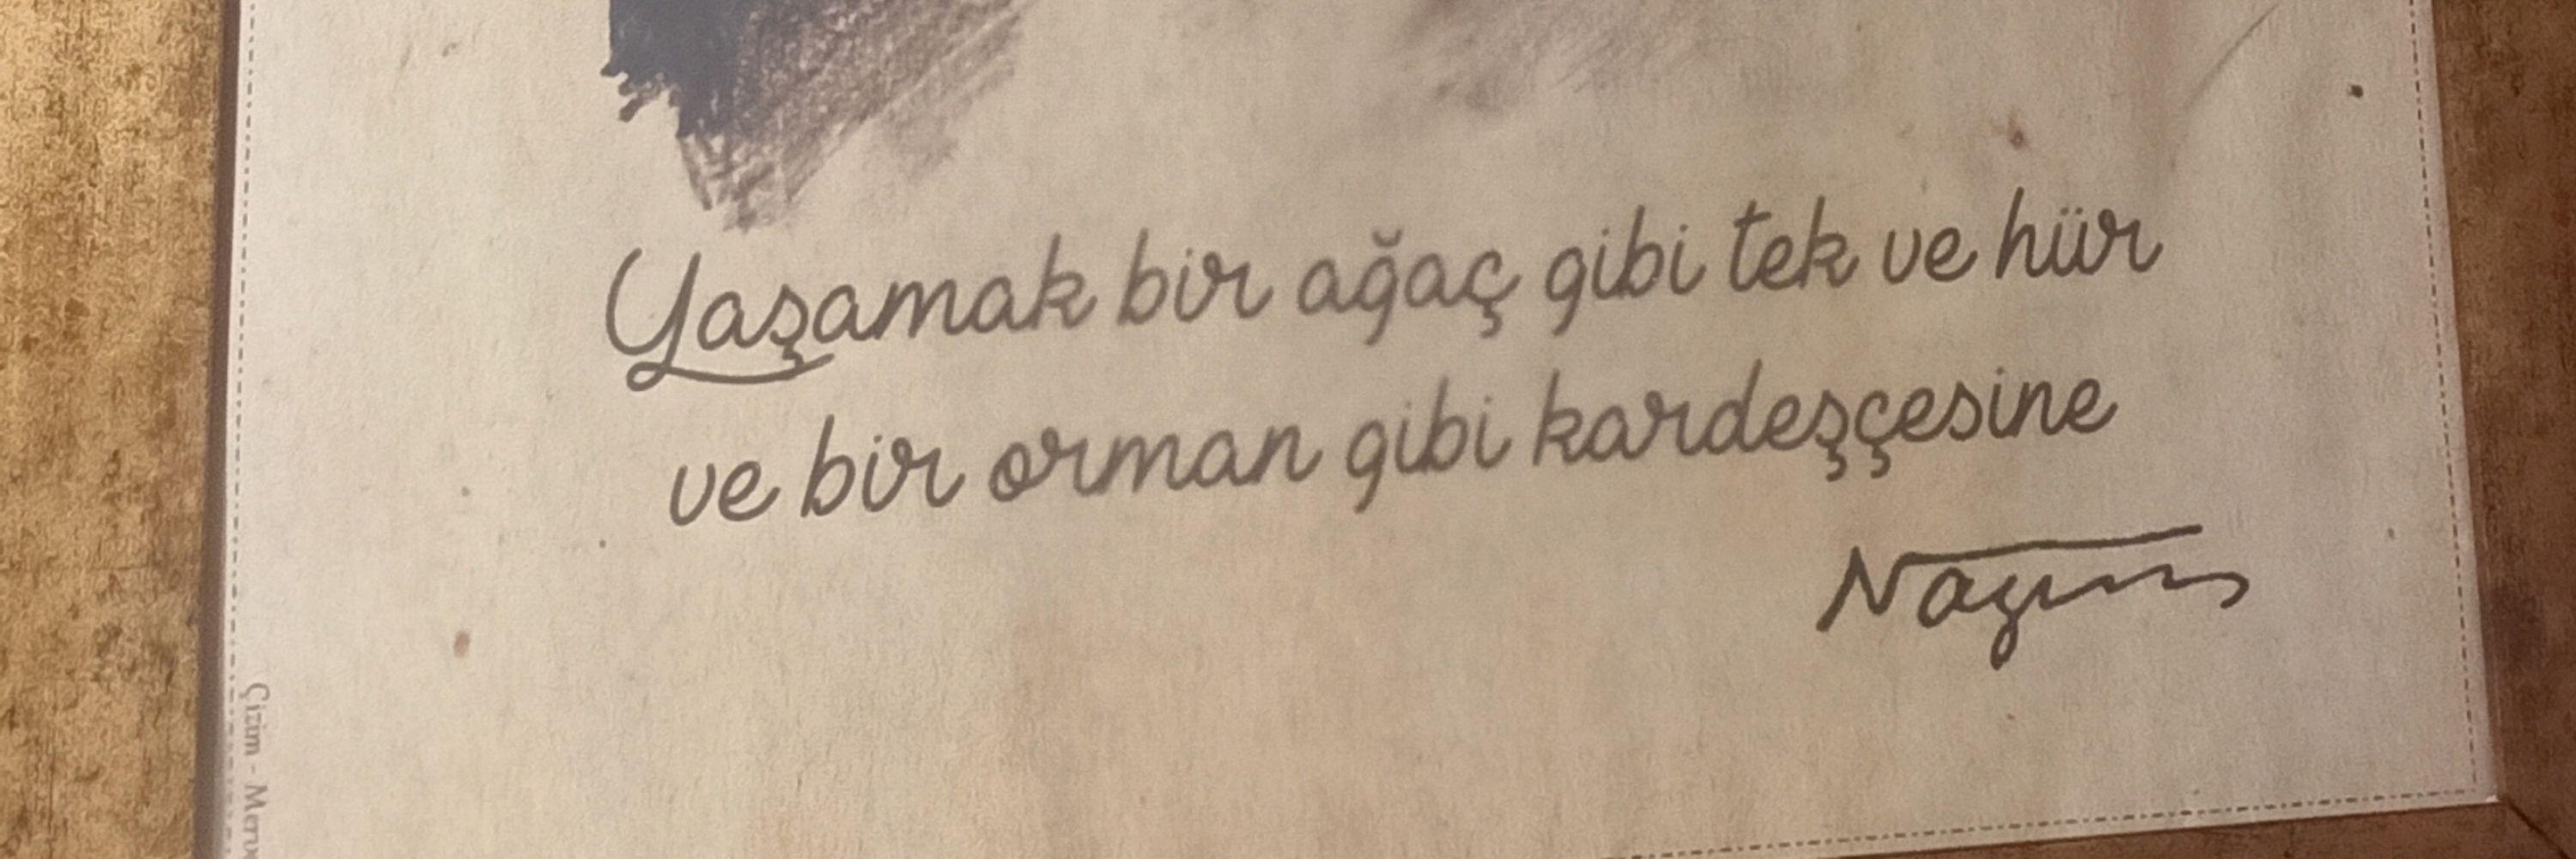 Yaşamak bir ağaç gibi tek ve hür
ve bir orman gibi kardeşçesine
Nazım
Çizim -